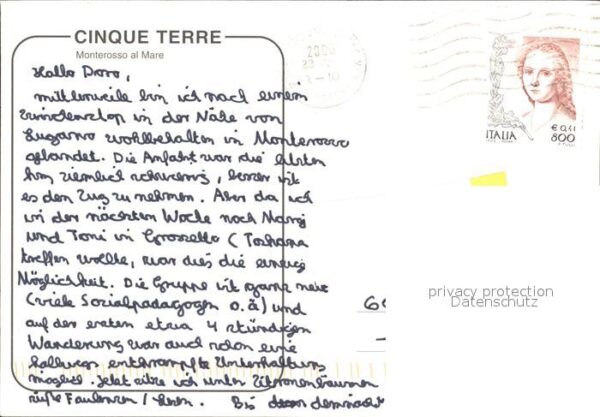 CINQUE TERRE
Monterosso al Mare
Hallo Doro,
mittlerweile bin ich nach einem
Zwischenstop in der Nähe von
Lugano wohlbehalten in Monterosso
gelandet. Die Anfahrt war die letzten
km ziemlich schwierig, besser ist
es den Zug zu nehmen. Aber da ich
in der nächsten Woche noch
und Toni in Grosseto (Toskana
treffen wollte, war dies die einzige
Möglichkeit. Die Gruppe ist ganz nett
(viele Sozialpädagogen o.ä) und
auf der ersten etwa 4 stündigen
Wanderung war auch schon eine
halbwegs entkrampfte Unterhaltung
möglich. Jetzt sitze ich unter Zitronenbäumen
süßes Faulenzen / Lesen. Bis demnächst
2000
23
ITALIA
€ 0,41
800
60
privacy protection
Datenschutz